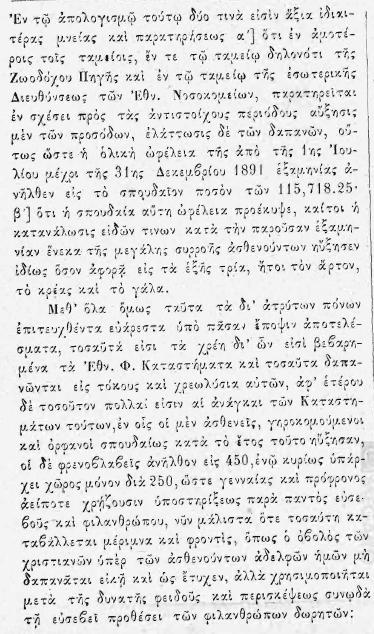 Ἐν τῷ ἀπολογισμῷ τούτῳ δύο τινὰ εἰσὶν ἄξια ἰδιαι-
τέρας μνείας καὶ παρατηρήσεως α´] ὅτι ἐν ἀμοτέ-
ροις τοῖς ταμείοις, ἔν τε τῷ ταμείῳ δηλονότι τῆς
Ζωοδόχου Πηγῆς καὶ ἐν τῷ ταμείῳ τῆς ἐσωτερικῆς
Διευθύνσεως τῶν Ἐθν. Νοσοκομείων, παρατηρεῖται
ἐν σχέσει πρὸς τὰς ἀντιστοίχους περιόδους αὔξησις
μὲν τῶν προσόδων, ἐλάττωσις δὲ τῶν δαπανῶν, οὕ-
τως ὥστε ἡ ὁλικὴ ὠφέλεια τῆς ἀπὸ τῆς 1ης Ἰου-
λίου μέχρι τῆς 31ης Δεκεμβρίου 1891 ἑξαμηνίας ἀ-
νῆλθεν εἰς τὸ σπουδαῖον ποσὸν τῶν 115,718.25·
β´] ὅτι ἡ σπουδαία αὕτη ὠφέλεια προέκυψε, καίτοι ἡ
κατανάλωσις εἰδῶν τινων κατὰ τὴν παροῦσαν ἑξαμη-
νίαν ἕνεκα τῆς μεγάλης συρροῆς ἀσθενούντων ηὔξησεν
ἰδίως ὅσον ἀφορᾷ εἰς τὰ ἑξῆς τρία, ἤτοι τὸν ἄρτον,
τὸ κρέας καὶ τὸ γάλα.
Μεθ᾽ ὅλα ὅμως ταῦτα τὰ δι᾽ ἀτρύτων πόνων
ἐπιτευχθέντα εὐάρεστα ὑπὸ πᾶσαν ἔποψιν ἀποτελέ-
σματα, τοσαῦτά εἰσι τὰ χρέη δι᾽ ὧν εἰσὶ βεβαρη-
μένα τὰ Ἐθν. Φ. Καταστήματα καὶ τοσαῦτα δαπα-
νῶνται εἰς τόκους καὶ χρεωλύσια αὐτῶν, ἀφ᾽ ἑτέρου
δὲ τοσοῦτον πολλαί εἰσιν αἱ ἀνάγκαι τῶν Καταστη-
μάτων τούτων, ἐν οἷς οἱ μὲν ἀσθενεῖς, γηροκομούμενοι
καὶ ὀρφανοὶ σπουδαίως κατὰ τὸ ἔτος τοῦτο ηὔξησαν,
οἱ δὲ φρενοβλαβεῖς ἀνῆλθον εἰς 450, ἐνῷ κυρίως ὑπάρ-
χει χῶρος μόνον διὰ 250, ὥστε γενναίας καὶ πρόφρονος
ἀείποτε χρῄζουσιν ὑποστηρίξεως παρὰ παντὸς εὐσε-
βοῦς καὶ φιλανθρώπου, νῦν μάλιστα ὅτε τοσαύτη κα-
ταβάλλεται μέριμνα καὶ φροντίς, ὅπως ὁ ὀβολὸς τῶν
χριστιανῶν ὑπὲρ τῶν ἀσθενούντων ἀδελφῶν ἡμῶν μὴ
δαπανᾶται εἰκῆ καὶ ὡς ἔτυχεν, ἀλλὰ χρησιμοποιῆται
μετὰ τῆς δυνατῆς φειδοῦς καὶ περισκέψεως συνῳδὰ
τῇ εὐσεβεῖ προθέσει τῶν φιλανθρώπων δωρητῶν: